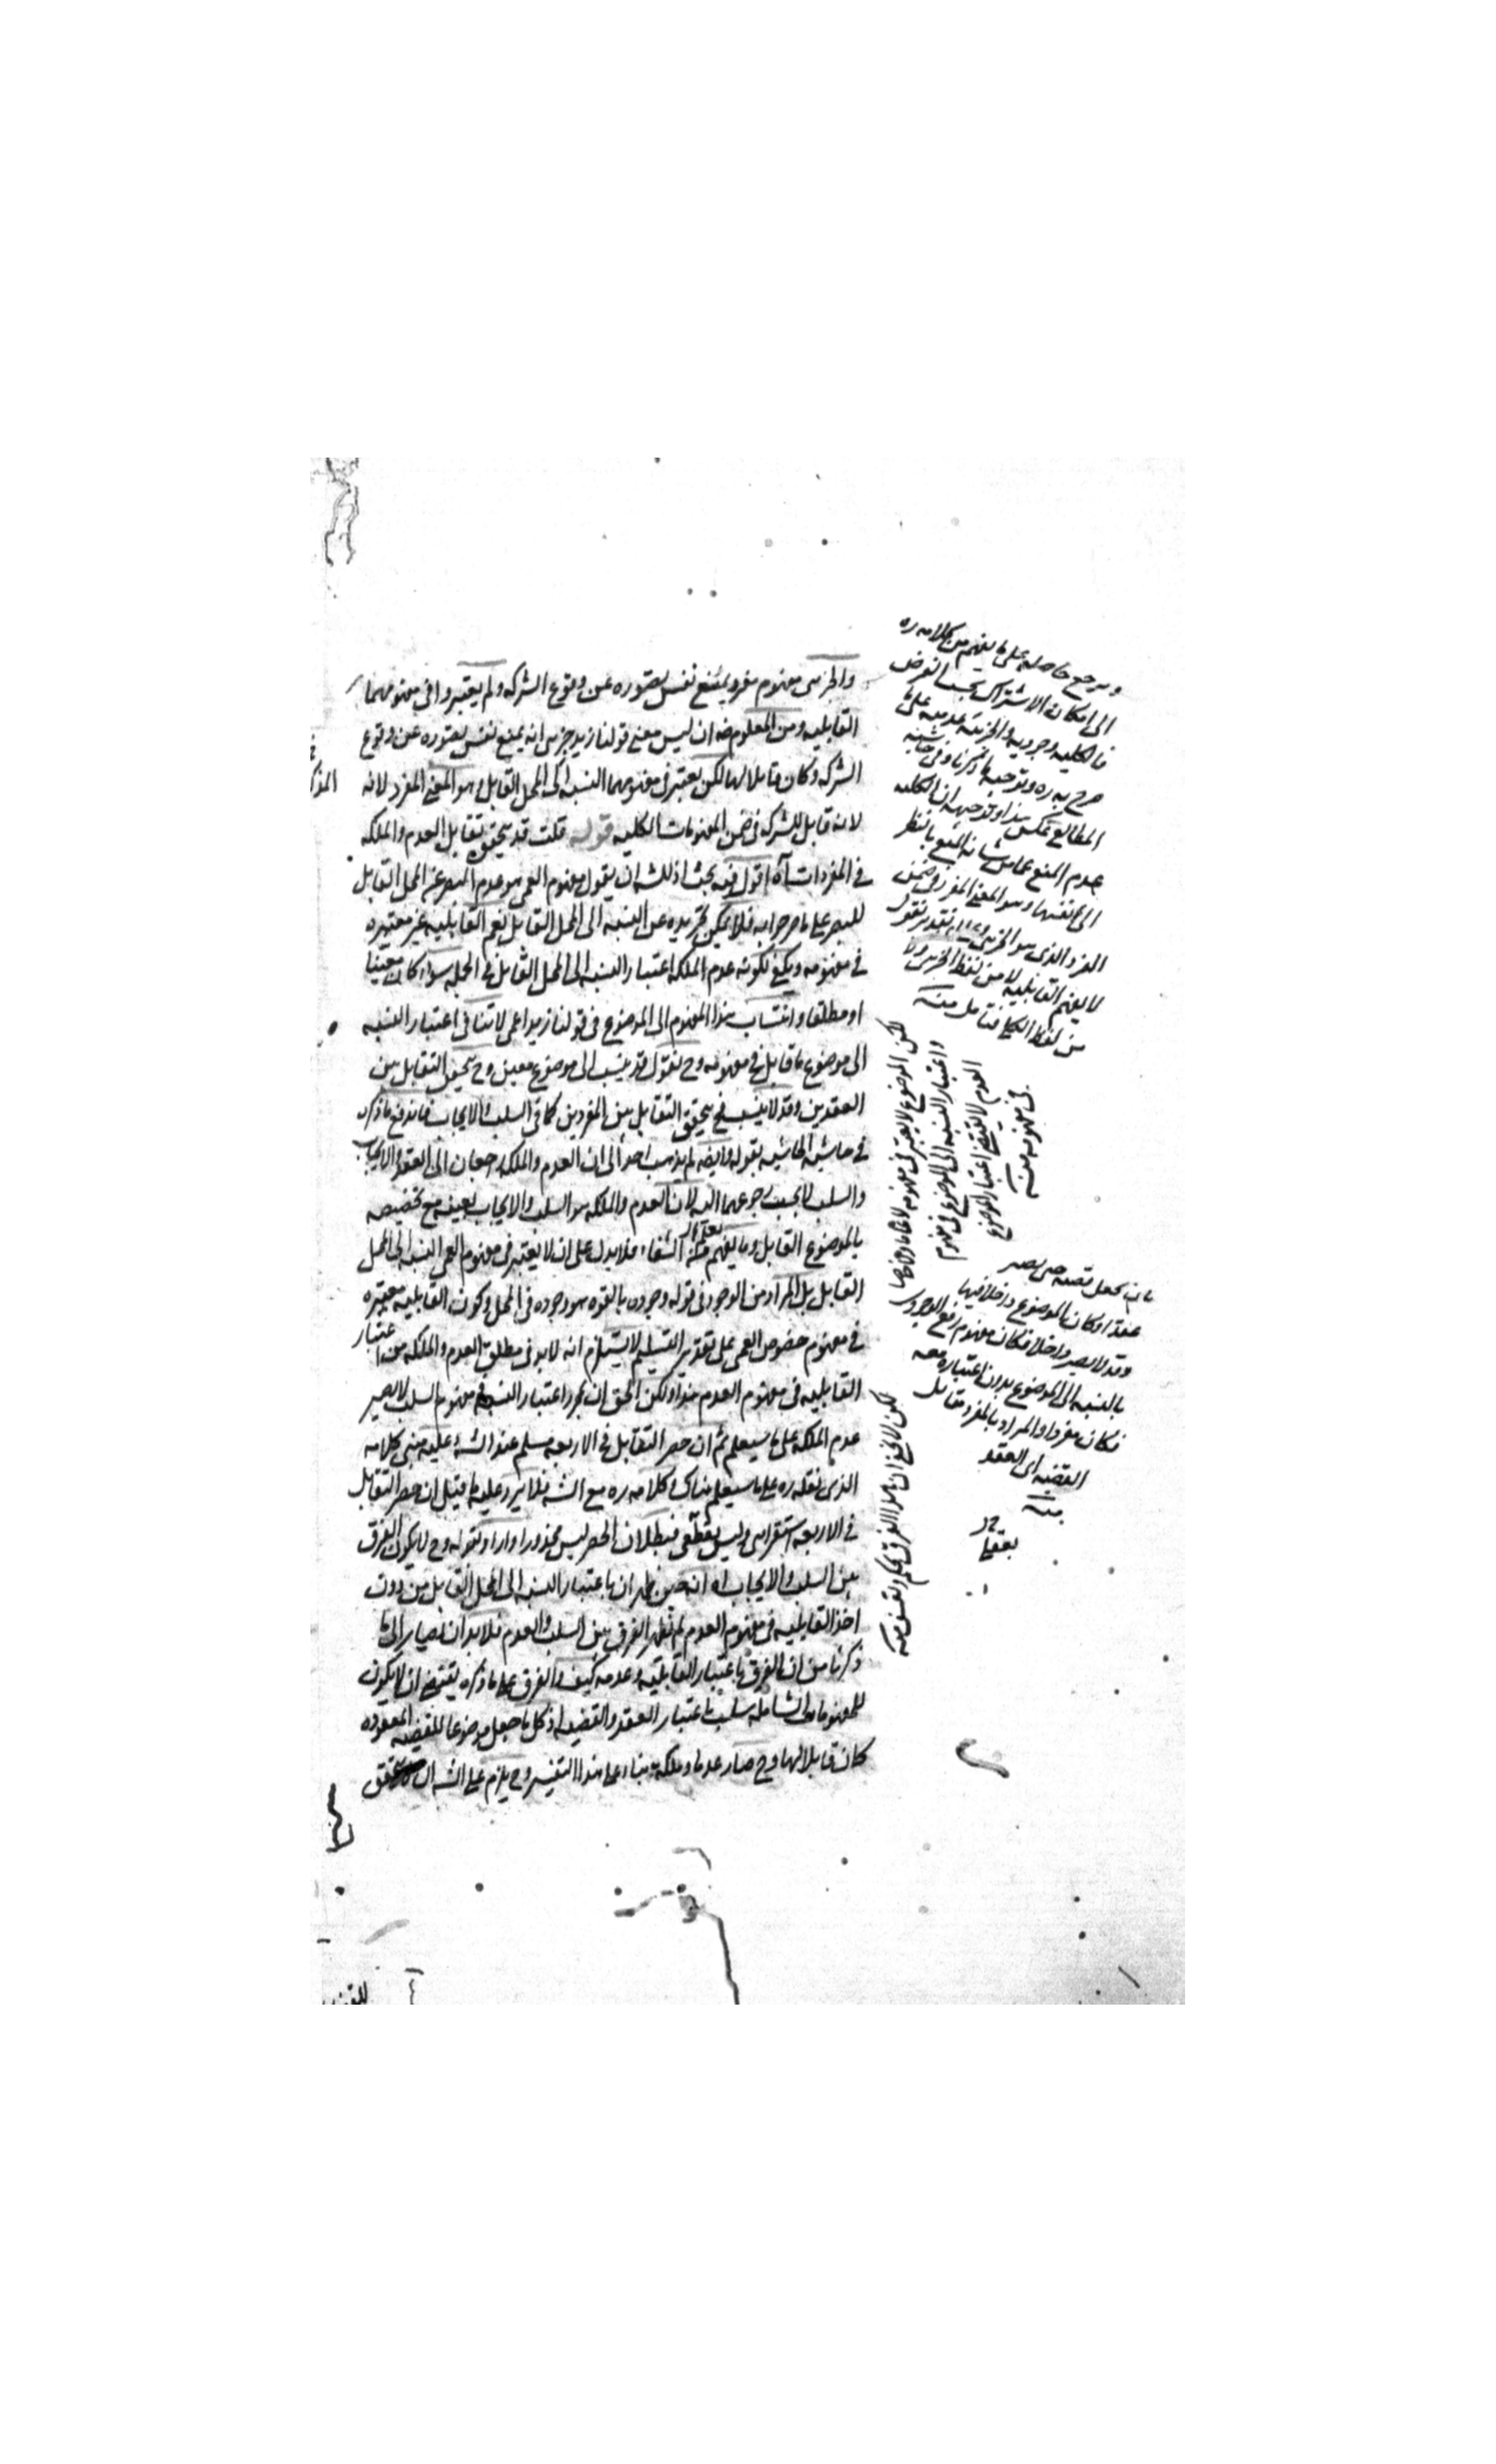 والجزئى مفهوم مفرد يمنع نفس تصوره عن وقوع الشركه ولم يعتبروا فى مفهومهما
القابليه ومن المعلوم ان ليس معنى قولنا زيد جزئى انه يمنع نفس تصوره عن وقوع
الشركه وكان قابلا لها لكن يعتبر فى مفهومهما النسبه الى المحل القابل وهو المعنى المفرد لانه
لانه قابل للشركه فى ضمن المفهومات الكليه قوله قلت قد يتحقق تقابل العدم والملكه
فى المفردات آه اقول فيه بحث اذ للشه ان يقول مفهوم العمى هو عدم البصر عن المحل القابل
للبصر على ما صرحوا به فلا يمكن تجريده عن النسبه الى المحل القابل نعم القابليه غير معتبره
فى مفهومه ويكفى لكونه عدم الملكه اعتبار النسبه الى المحل القابل فى الجمله سواء كان معينا
او مطلقا وانتساب هذا المفهوم الى الموضوع فى قولنا زيد اعمى لا تنافى اعتبار النسبه
الى موضوع ما قابل فى مفهومه وح نقول قد ينسب الى موضوع معين وح يتحقق التقابل بين
العقدين وقد لا ينسب فح يتحقق التقابل بين المفردين كما فى السلب والايجاب فاندفع ما ذكره
فى حاشيه الحاشيه بقوله وايضه لم يذهب احد الى ان العدم والملكه راجعان الى العقد والايجاب
والسلب لا يجب رجوعهما اليه لان العدم والملكه هو السلب والايجاب بعينه مع تخصيصه
بالموضوع القابل وما يفهم من الشفاء فلا يدل على ان لا يعتبر فى مفهوم العمى النسبه الى المحل
القابل بل المراد من الوجود فى قوله وجوده بالقوه هو وجوده فى المحل وكون القابليه معتبره
فى مفهوم خصوص العمى على تقدير التسليم لا يستلزم انه لا بد فى مطلق العدم والملكه من اعتبار
القابليه فى مفهوم العدم هذا ولكن الحق ان مجرد اعتبار النسبه فى مفهوم السلب لا يصير
عدم الملكه على ما سيعلم ثم ان حصر التقابل فى الاربعه مسلم عند الشه وعليه مبنى كلامه
الذى نقله ره على ما سيعلم هناك وكلامه ره مع الشه فلا يرد عليه ما قيل ان حصر التقابل
فى الاربعه استقرائى وليس بقطعى فبطلان الحصر ليس محذورا واراد بقوله وح لا يكون الفرق
بين السلب والايجاب اه انه حين ظهر ان باعتبار النسبه الى المحل القابل من دون
اخذ القابليه فى مفهوم العدم لم يظهر الفرق بين السلب والعدم فلا بد ان يصار الى ما
ذكرنا من ان الفرق باعتبار القابليه وعدمه كيف والفرق على ما ذكره يقتضى ان لا يكون
للمفهومات الشامله سلب باعتبار العقد والقضيه اذ كل ما جعل موضوعا للقضيه المعقوده
كان قابلا لها وح صار عدما وملكه بناء على هذا التفسير وح يلزم على الشه ان يتحقق
ويرجع حاصله على ما يفهم من كلامه ره
الى امكان الاشتراك بحسب الفرض
فالكليه وجوديه والجزئيه عدميه على ما
صرح به ره وتوجيه ما ذكرنا وفى حاشيه
المطالع عكس هذا وتوجيهه ان الكليه
عدم المنع عما من شانه المنع بالنظر
الى نفسها وهو المعنى المفرد فى ضمن
الفرد الذى هو الجزئى
لا يفهم القابليه لا من لفظ الجزئى ولا
من لفظ الكلى فتامل منه
لكن الموضوع لا يعتبر فى مفهومه لا عاما ولا خاصا
واعتبار النسبه الى الموضوع فى مفهوم
العدم لا يقتضى اعتبار الموضوع
فى مفهومه منه
بان يجعل قضيه حتى يصير
عقدا وكان الموضوع داخلا فيها
وقد لا يصير داخلا فكان مفهوم رفع الوجودى
بالنسبه الى الموضوع بدون اعتباره معه
فكان مفردا والمراد بالمفرد مقابل
القضيه اى العقد
منه
لكن لا يخفى ان هذا الفرق تحكم وتعسف منه